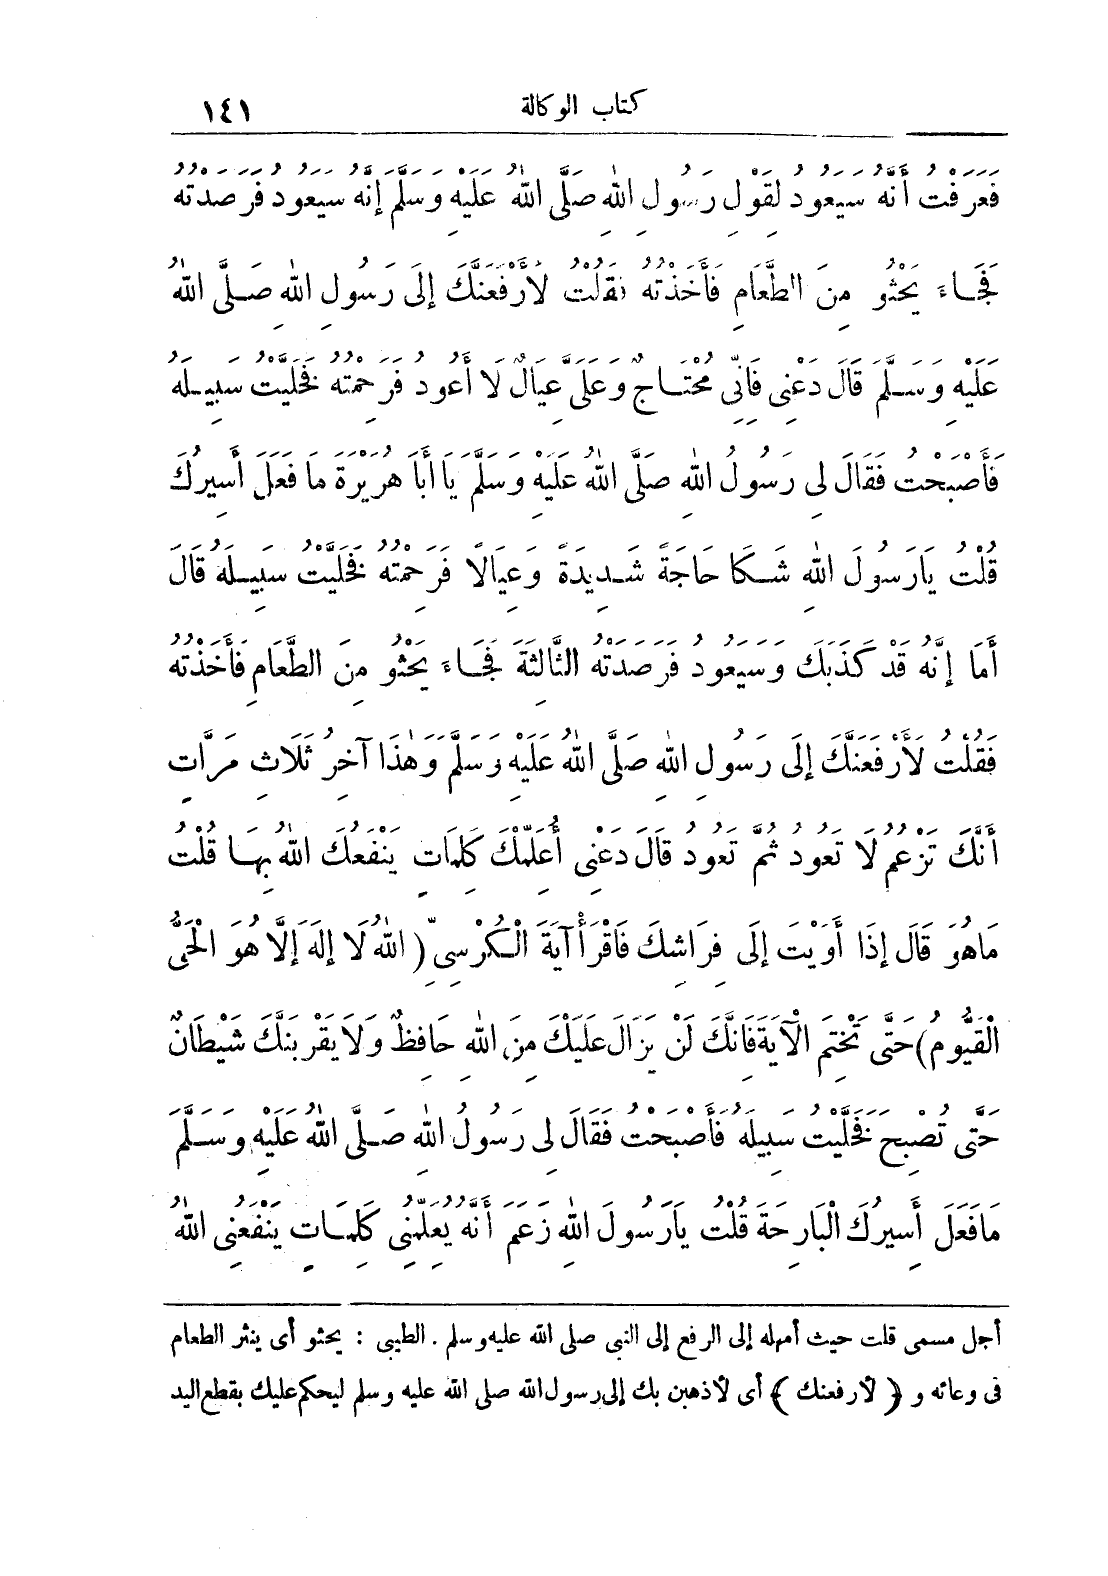 كتاب الوكالة ١٤١
فَعَرَفْتُ أَنَّهُ سَيَعُودُ لِقَوْلِ رَسُولِ اللهِ صَلَّى اللهُ عَلَيْهِ وَسَلَّمَ إِنَّهُ سَيَعُودُ فَرَصَدْتُهُ
فَجَاءَ يَحْثُو مِنَ الطَّعَامِ فَأَخَذْتُهُ فَقُلْتُ لَأَرْفَعَنَّكَ إِلَى رَسُولِ اللهِ صَلَّى اللهُ
عَلَيْهِ وَسَلَّمَ قَالَ دَعْنِى فَانِّى مُحْتَاجٌ وَعَلَىَّ عِيَالٌ لَا أَعُودُ فَرَحِمْتُهُ فَخَلَّيْتُ سَبِيلَهُ
فَأَصْبَحْتُ فَقَالَ لِى رَسُولُ اللهِ صَلَّى اللهُ عَلَيْهِ وَسَلَّمَ يَا أَبَا هُرَيْرَةَ مَا فَعَلَ أَسِيرُكَ
قُلْتُ يَارَسُولَ اللهِ شَكَا حَاجَةً شَدِيدَةً وَعِيَالًا فَرَحِمْتُهُ فَخَلَّيْتُ سَبِيلَهُ قَالَ
أَمَا إِنَّهُ قَدْ كَذَبَكَ وَسَيَعُودُ فَرَصَدْتُهُ الثَّالِثَةَ فَجَاءَ يَحْثُو مِنَ الطَّعَامِ فَأَخَذْتُهُ
فَقُلْتُ لَأَرْفَعَنَّكَ إِلَى رَسُولِ اللهِ صَلَّى اللهُ عَلَيْهِ وَسَلَّمَ وَهٰذَا آخِرُ ثَلَاثِ مَرَّاتٍ
أَنَّكَ تَزْعُمُ لَا تَعُودُ ثُمَّ تَعُودُ قَالَ دَعْنِى أُعَلِّمْكَ كَلِمَاتٍ يَنْفَعُكَ اللهُ بِهَا قُلْتُ
مَاهُوَ قَالَ إِذَا أَوَيْتَ إِلَى فِرَاشِكَ فَاقْرَأْ آيَةَ الْكُرْسِىِّ ( اللهُ لَا إِلَهَ إِلَّا هُوَ الْحَىُّ
الْقَيُّومُ) حَتَّى تَخْتِمَ الْآيَةَ فَانَّكَ لَنْ يَزَالَ عَلَيْكَ مِنَ اللهِ حَافِظٌ وَلَا يَقْرَبَنَّكَ شَيْطَانٌ
حَتَّى تُصْبِحَ فَخَلَّيْتُ سَبِيلَهُ فَأَصْبَحْتُ فَقَالَ لِى رَسُولُ اللهِ صَلَّى اللهُ عَلَيْهِ وَسَلَّمَ
مَافَعَلَ أَسِيرُكَ الْبَارِحَةَ قُلْتُ يَارَسُولَ اللهِ زَعَمَ أَنَّهُ يُعَلِّمُنِى كَلِمَاتٍ يَنْفَعُنِى اللهُ
أجل مسمى قلت حيث أمهله إلى الرفع إلى النبى صلى الله عليه وسلم . الطيبى : يحثو أى ينثر الطعام
فى وعائه و ﴿ لأرفعنك ﴾ أى لأذهبن بك إلى رسول الله صلى الله عليه وسلم ليحكم عليك بقطع اليد